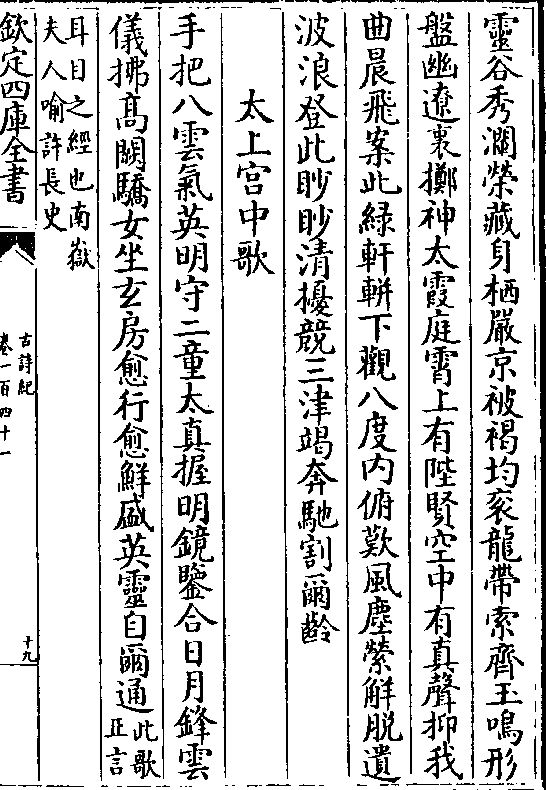 靈谷秀瀾榮藏身栖巖京被褐均袞龍帶索齊玉鳴形
盤幽遼裏擲神太霞庭霄上有陛賢空中有真聲抑我
曲晨飛案此綠軒軿下觀八度内俯歎風塵縈解脱遺
波浪登此眇眇清擾競三津竭奔馳割爾齡
太上宫中歌
手把八雲氣英明守二童太真握明鏡鑒合日月鋒雲
儀拂髙闕驕女坐玄房愈行愈鮮盛英靈自爾通此歌
正言
耳目之經也南嶽
夫人喻許長史
欽定四庫全書
古詩紀
卷一百四十一
十九